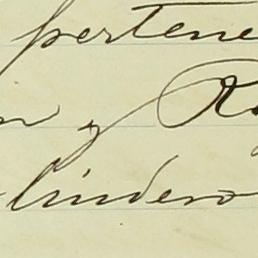 pertene
n y Ro
lindero